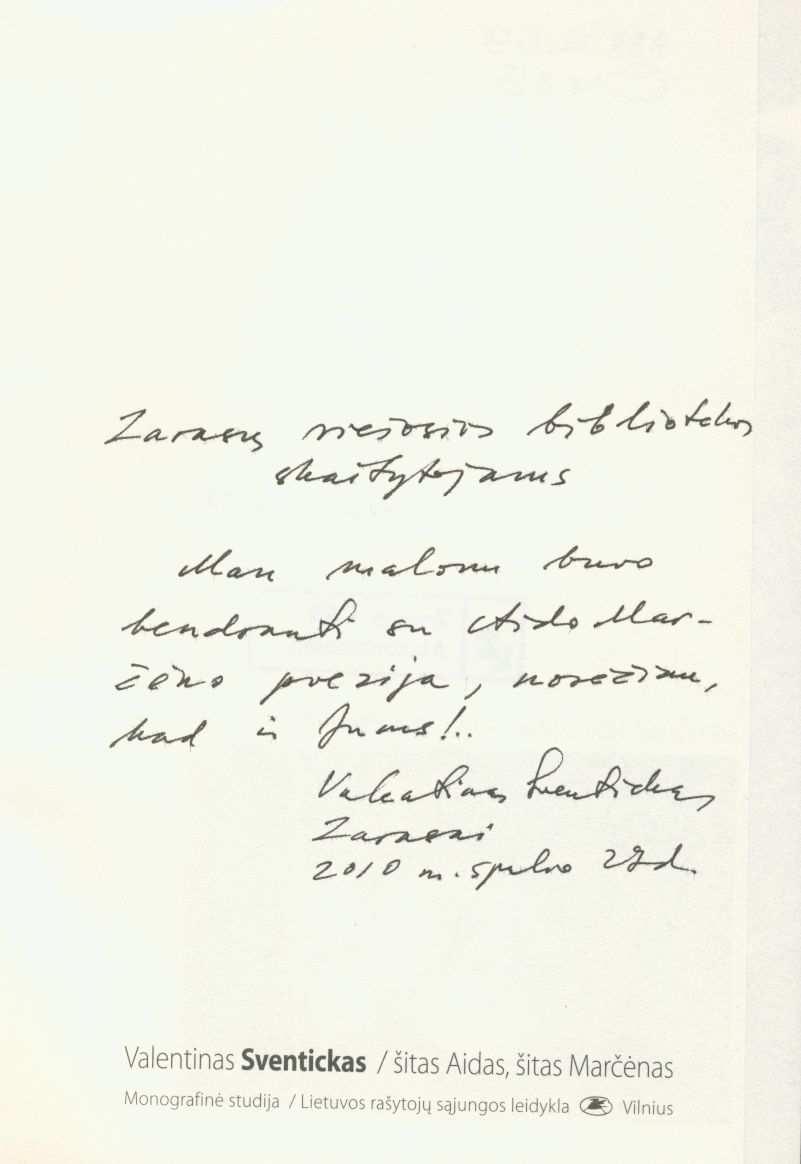 Zarasų viešosios bibliotekos
skaitytojams
Man malonu buvo
bendrauti su Aido Mar-
čėno poezija, norėčiau,
kad ir Jums!..
Valentinas Sventickas
Zarasai
2010 m. spalio 27 d.
Valentinas Sventickas / šitas Aidas, šitas Marčėnas
Monografinė studija / Lietuvos rašytojų sąjungos leidykla Vilnius